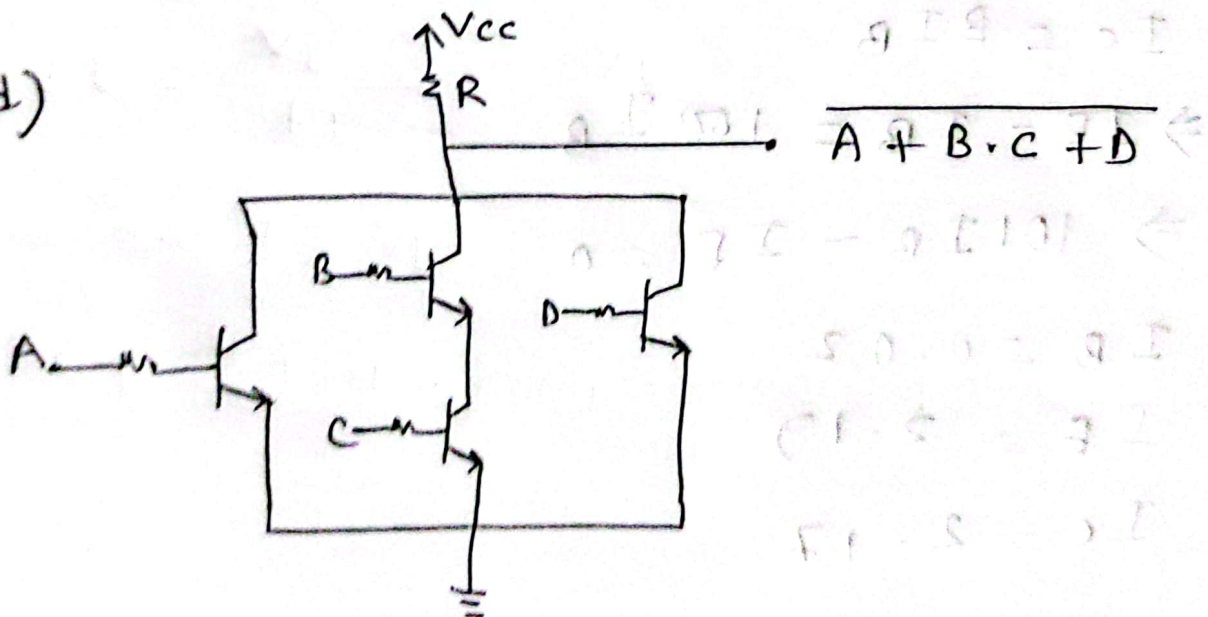 d)
Vcc
R
A + B . C + D
B
D
A
C